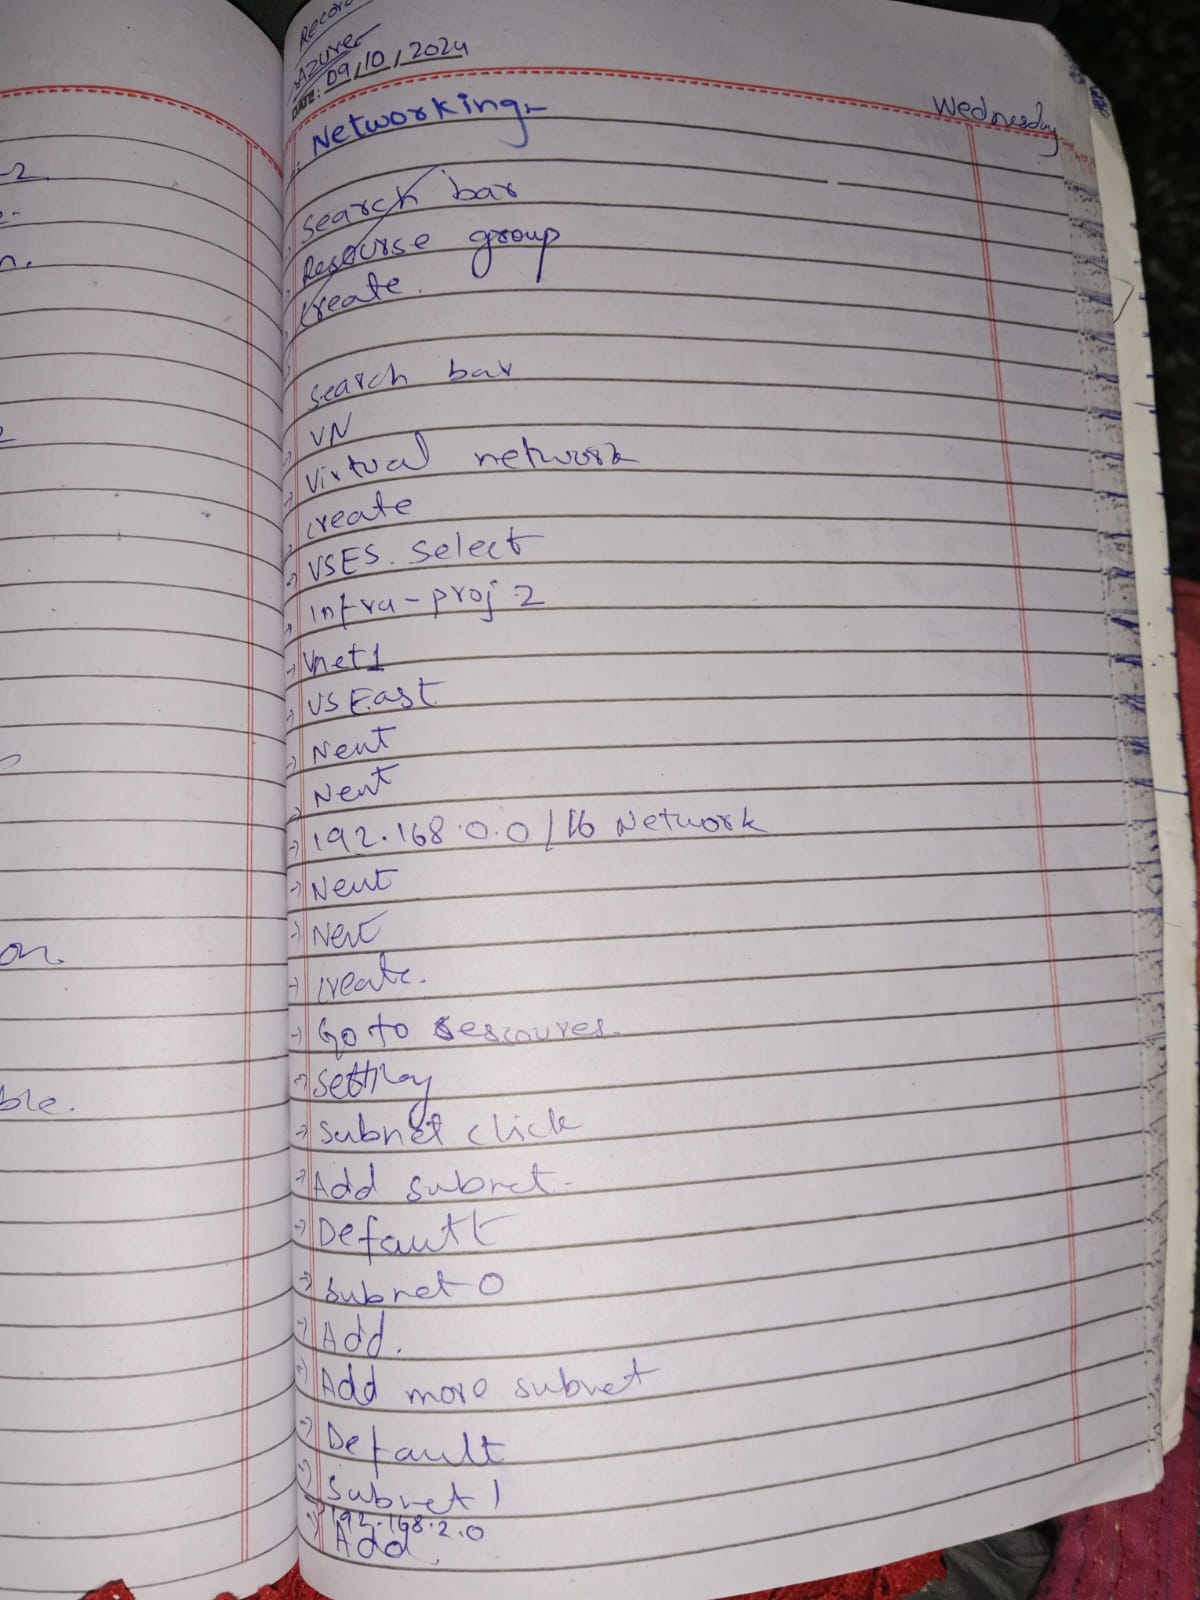 Record
Azure
DATE: 09/10/2024
Wednesday
Networking-
search bar
Resourse group
create.
search bar
VN
Virtual network
create
VSES. select
infra-proj 2
Vnet1
US East
Next
Next
192.168.0.0/16 Network
Next
Next
create.
Go to rescoures.
setting
subnet click
Add subnet-
Default
subnet 0
Add.
Add more subnet
Default
subnet 1
192.168.2.0
Add
-2
n.
on.
ble.